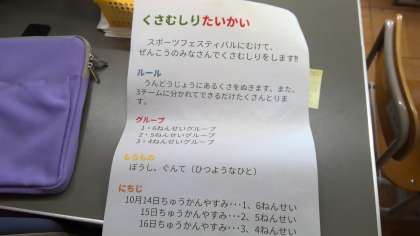 くさむしりたいかい
スポーツフェスティバルにむけて、
ぜんこうのみなさんでくさむしりをします!!
ルール
うんどうじょうにあるくさをぬきます。また、
3チームに分かれてできるだけたくさんとりま
す。
グループ
1・6ねんせいグループ
2・5ねんせいグループ
3・4ねんせいグループ
もちもの
ぼうし、ぐんて（ひつようなひと）
にちじ
10月14日ちゅうかんやすみ･･･1、6ねんせい
15日ちゅうかんやすみ･･･2、5ねんせい
16日ちゅうかんやすみ･･･3、4ねんせい